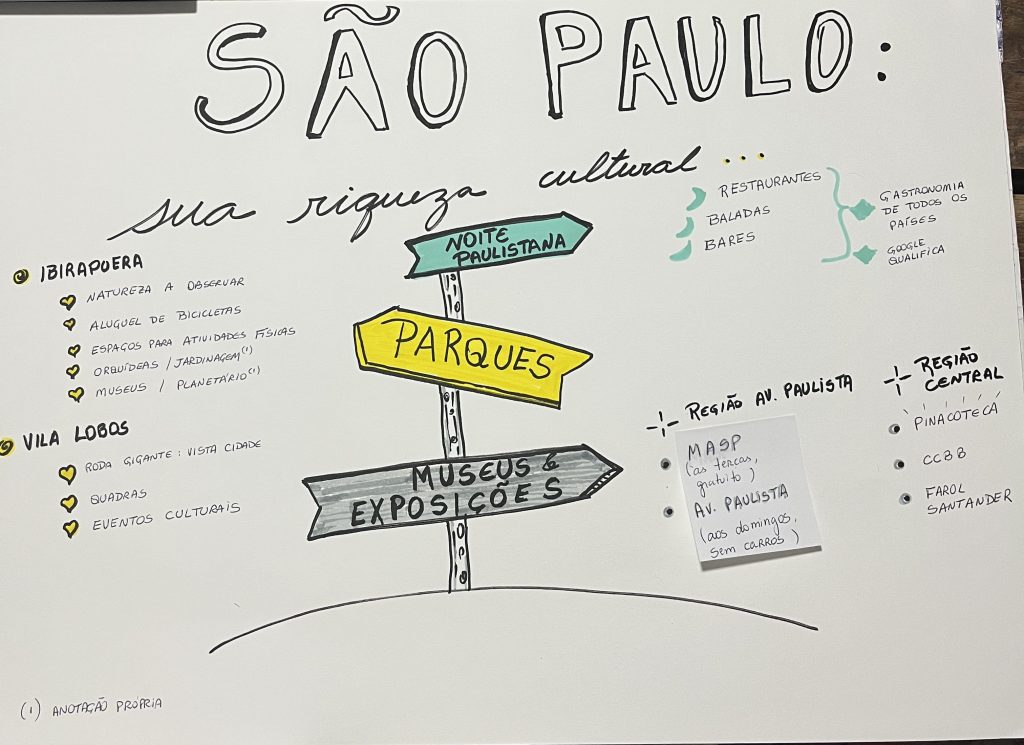 SÃO PAULO:
sua riqueza cultural ...
NOITE
PAULISTANA
RESTAURANTES
BALADAS
BARES
GASTRONOMIA
DE TODOS OS
PAÍSES
GOOGLE
QUALIFICA
IBIRAPUERA
NATUREZA A OBSERVAR
ALUGUEL DE BICICLETAS
ESPAÇOS PARA ATIVIDADES FÍSICAS
ORQUÍDEAS / JARDINAGEM (1)
MUSEUS / PLANETÁRIO (1)
PARQUES
VILA LOBOS
RODA GIGANTE: VISTA CIDADE
QUADRAS
EVENTOS CULTURAIS
MUSEUS &
EXPOSIÇÕES
REGIÃO AV. PAULISTA
MASP
(as terças,
gratuito)
AV. PAULISTA
(aos domingos,
sem carros)
REGIÃO
CENTRAL
PINACOTECA
CCBB
FAROL
SANTANDER
(1) ANOTAÇÃO PRÓPRIA